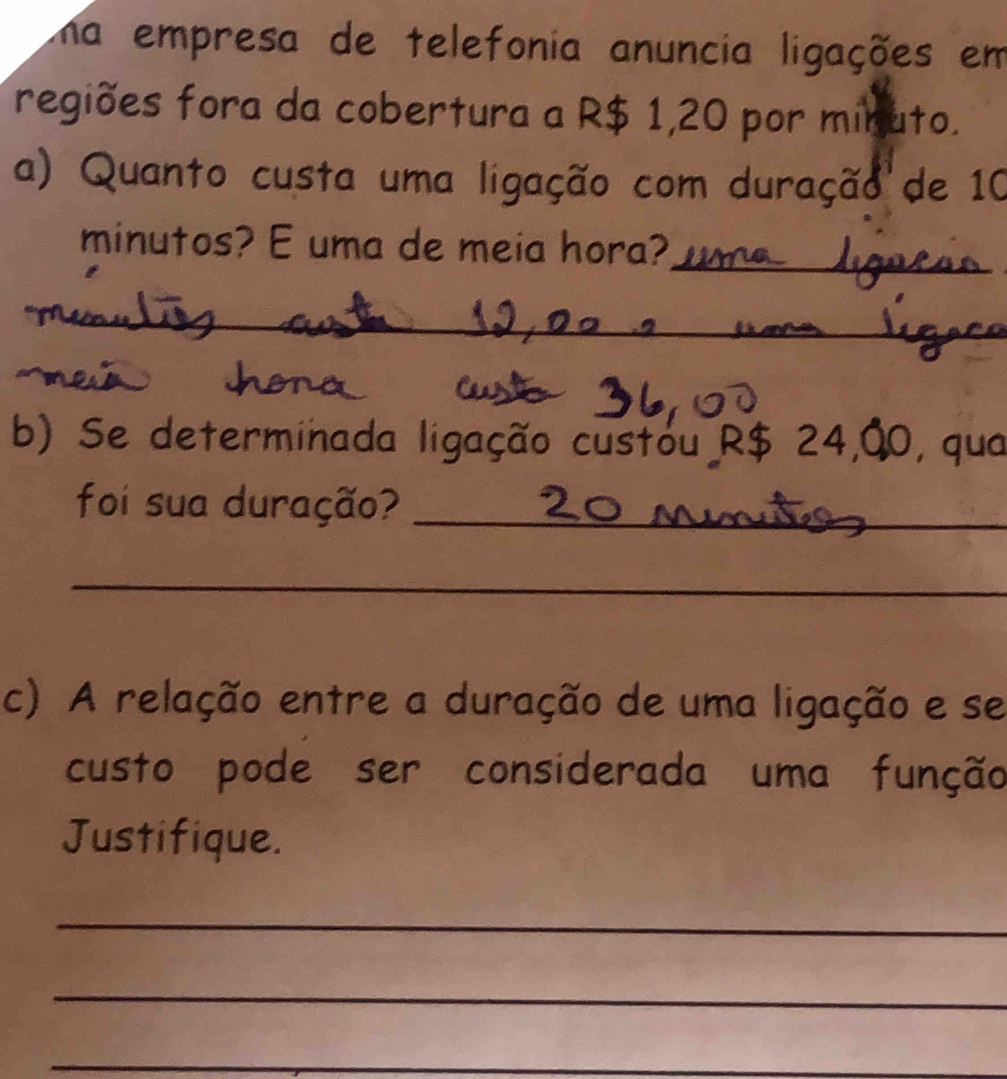 ma empresa de telefonia anuncia ligações em
regiões fora da cobertura a R$ 1,20 por minuto.
a) Quanto custa uma ligação com duração de 10
minutos? E uma de meia hora? uma ligação
minutos custa 12,00 e uma ligaca
meia hora custa 36,00
b) Se determinada ligação custou R$ 24,00, qua
foi sua duração? 20 minutos
c) A relação entre a duração de uma ligação e se
custo pode ser considerada uma função
Justifique.